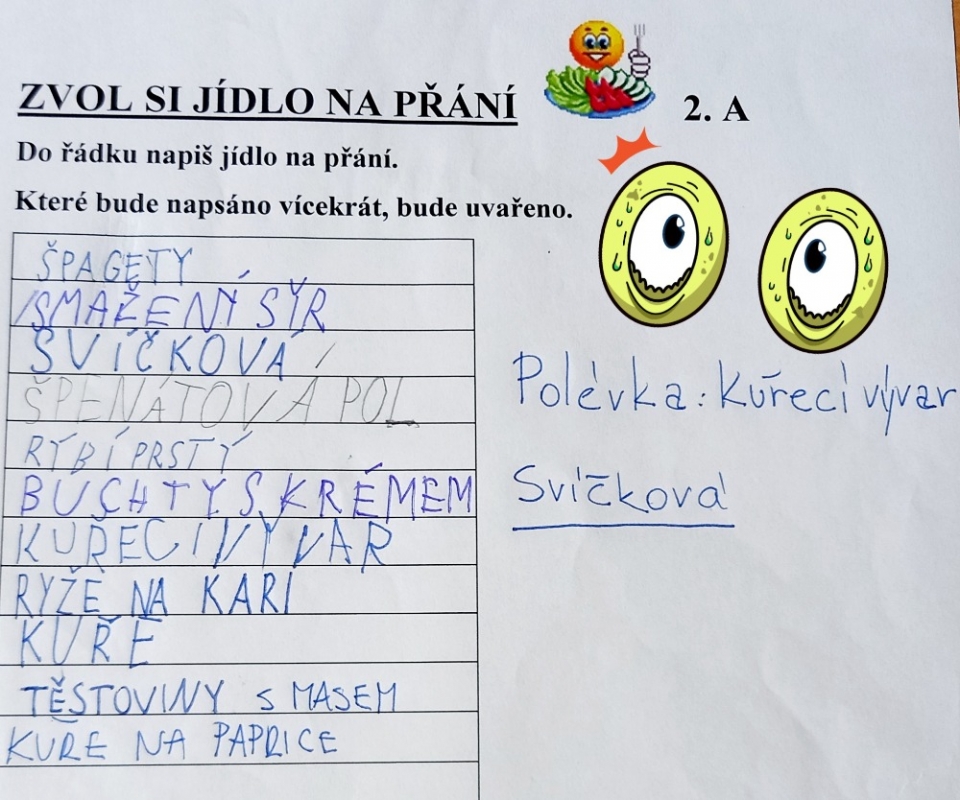 ZVOL SI JÍDLO NA PŘÁNÍ
2. A
Do řádku napiš jídlo na přání.
Které bude napsáno vícekrát, bude uvařeno.
ŠPAGETY
SMAŽENÝ SÝR
SVÍČKOVÁ
ŠPENÁTOVÁ POL
RYBÍ PRSTY
BUCHTY S KRÉMEM
KUŘECI VÝVAR
RYŽE NA KARI
KUŘE
TĚSTOVINY S MASEM
KUŘE NA PAPRICE
Polévka: Kuřecí vývar
Svíčková